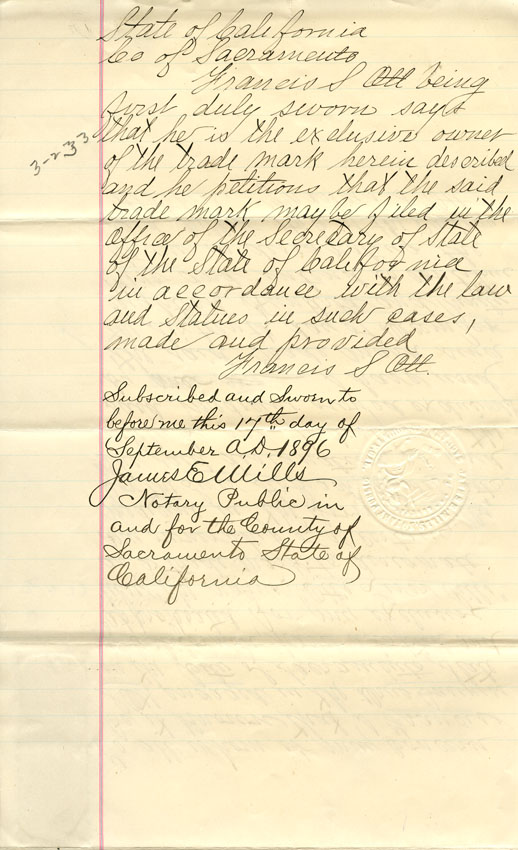 State of California
Co of Sacramento
Francis S Ott being
first duly sworn says
that he is the exclusive owner
3-233
of the trade mark herein described
and he petitions that the said
trade mark maybe filed in the
office of the Secretary of State
of the State of California
in accordance with the law
and Statues in such cases,
made and provided
Francis S Ott.
Subscribed and Sworn to
before me this 17th day of
September A.D. 1896
James E Mills
Notary Public in
and for the County of
Sacramento State of
California